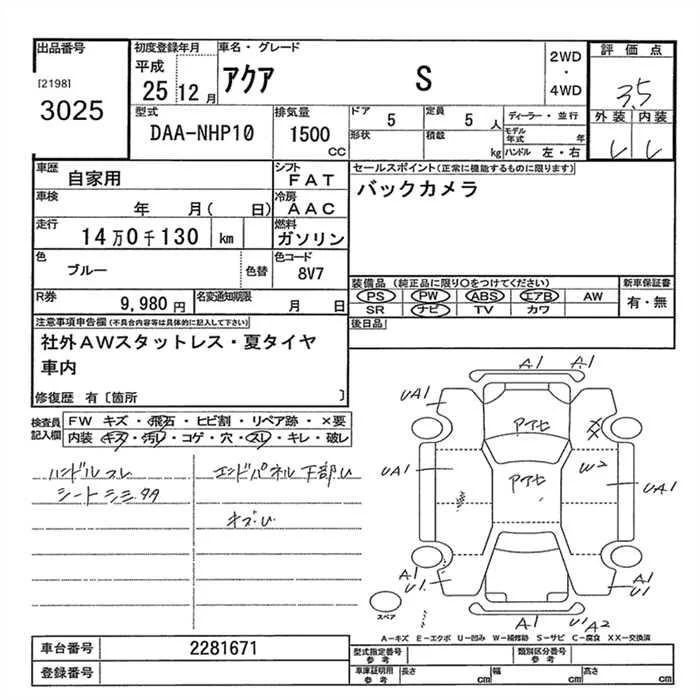 出品番号 初度登録年月 車名・グレード 評価点
[2198]
3025
平成
25 12月
アクア S
2WD
・
4WD
3.5
型式 排気量 ドア 定員 ディーラー・並行 外装 内装
DAA-NHP10 1500 CC 5 5 人
形状 積載 kg モデル年式 年式
ハンドル 左・右
車歴 自家用 シフト FAT セールスポイント(正常に機能するものに限ります)
バックカメラ
車検 年 月( 日) 冷房 AAC
走行 14万0千130 km 燃料 ガソリン
色 ブルー 色替 色コード 8V7
装備品 (純正品に限り○をつけてください) 新車保証書
PS PW ABS エアB AW 有・無
SR ナビ TV カワ
R券 9,980円 名変通知期限 月 日
後日品
注意事項申告欄(不具合内容等は具体的に記入して下さい)
社外AWスタットレス・夏タイヤ
車内
修復歴 有〔箇所 〕
検査員記入欄
FW キズ・飛石・ヒビ割・リペア跡・×要
内装 キズ・汚レ・コゲ・穴・スレ・キレ・破レ
ハンドルスレ エンドパネル下部U
シートシミ
キズU
A1 A1
UA1
アイセ
UA1 W2
アイセ
UA1
A1 A1
U1 U1
スペア
A1 U1 A2
A-キズ E-エクボ U-凹み W-補修跡 S-サビ C-腐食 XX-交換済
車台番号 2281671
登録番号
型式指定番号 参考 類別区分番号 参考
車庫証明用 参考 長さ cm 幅 cm 高さ cm